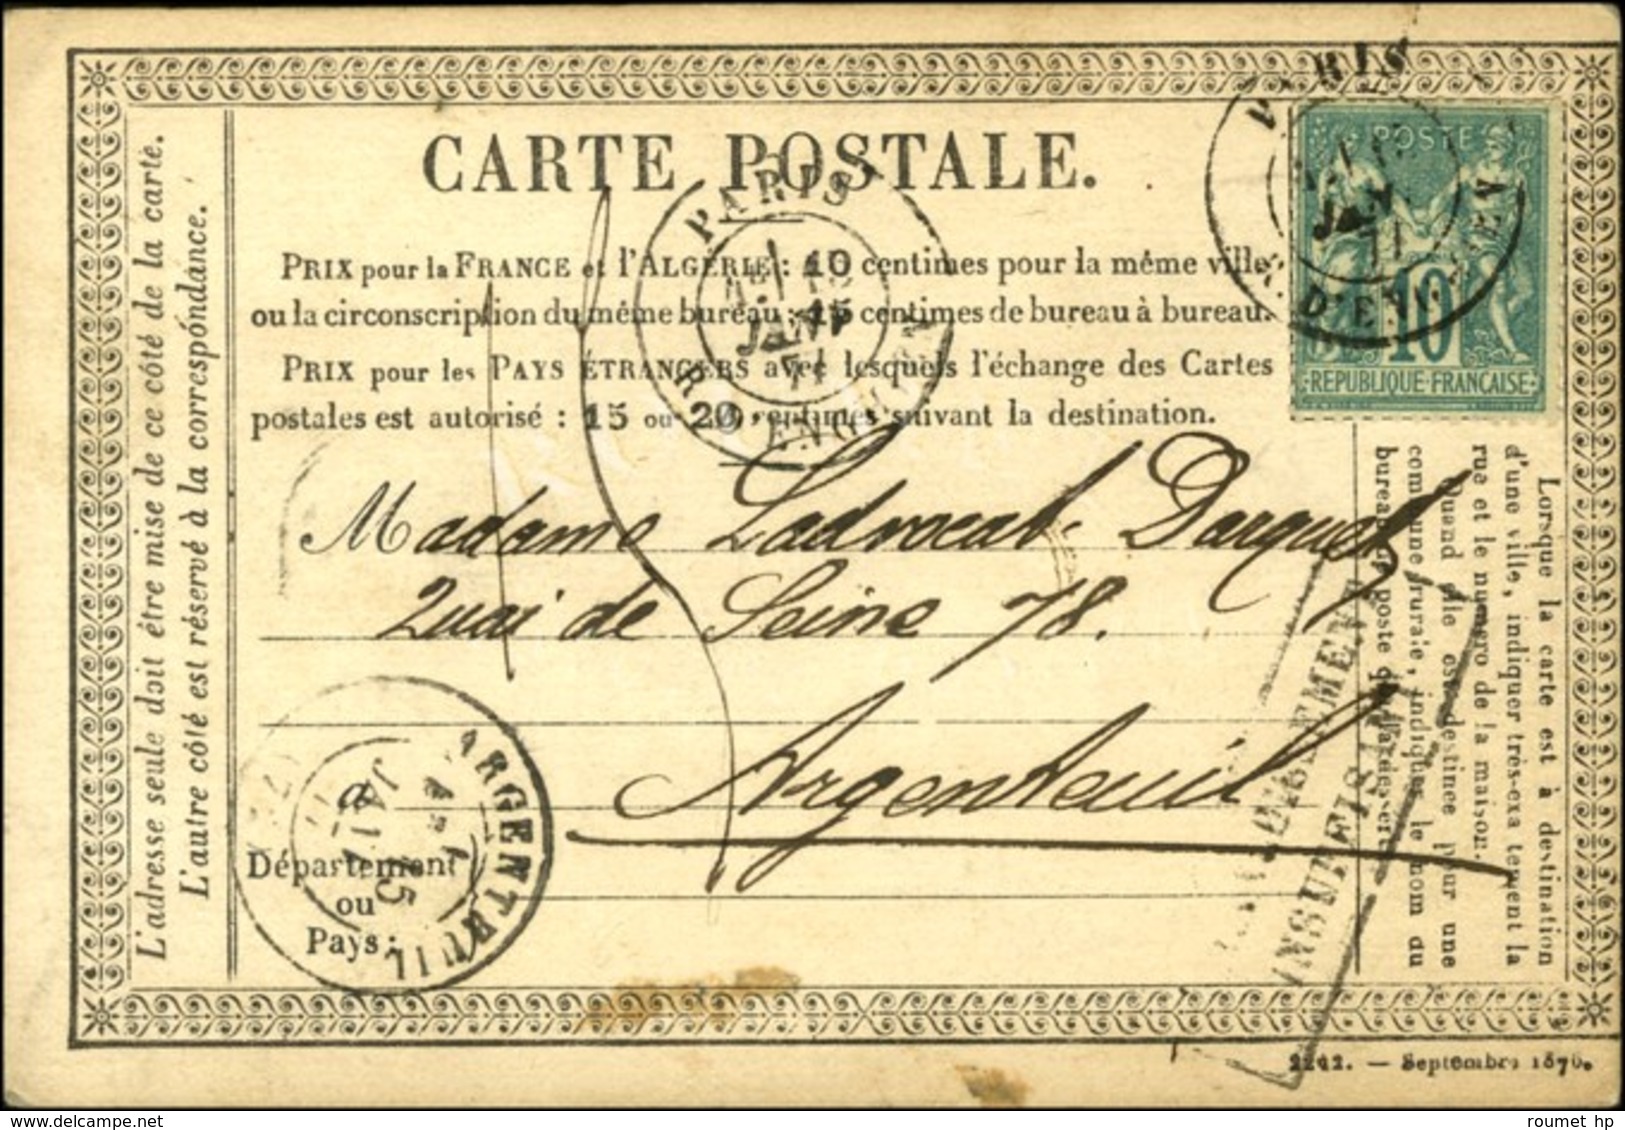 CARTE POSTALE.
PRIX pour la FRANCE et l'ALGÉRIE : 10 centimes pour la même ville
ou la circonscription du même bureau : 15 centimes de bureau à bureau.
PRIX pour les PAYS ÉTRANGERS avec lesquels l'échange des Cartes
postales est autorisé : 15 ou 20 centimes suivant la destination.
L'adresse seule doit être mise de ce côté de la carte.
L'autre côté est réservé à la correspondance.
PARIS
JANV
77
R. D'ENGHIEN
PARIS
JANV.
77
R. D'ENGHIEN
POSTE
10
REPUBLIQUE FRANÇAISE
Madame Ladvocat Darquet
Quai de Seine 78.
Argenteuil
à
Département
ou
Pays :
ARGENTEUIL
JANV
Lorsque la carte est à destination
d'une ville, indiquer très-exactement la
rue et le numéro de la maison.
Quand elle est destinée pour une
commune rurale, indiquer le nom du
bureau de poste qui la dessert.
INSUFFIS
2242. — Septembre 1876.
roumet hp